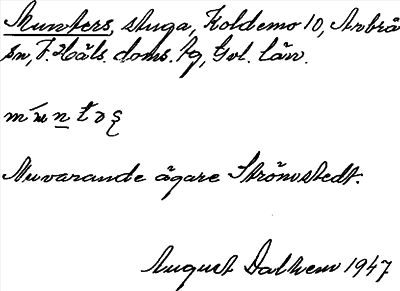 Munters, stuga, Koldemo 10, Arbrå
sn, V. Häls. doms. tg, Gvl. län.
Nuvarande ägare Strömstedt.
August Dalhem 1947